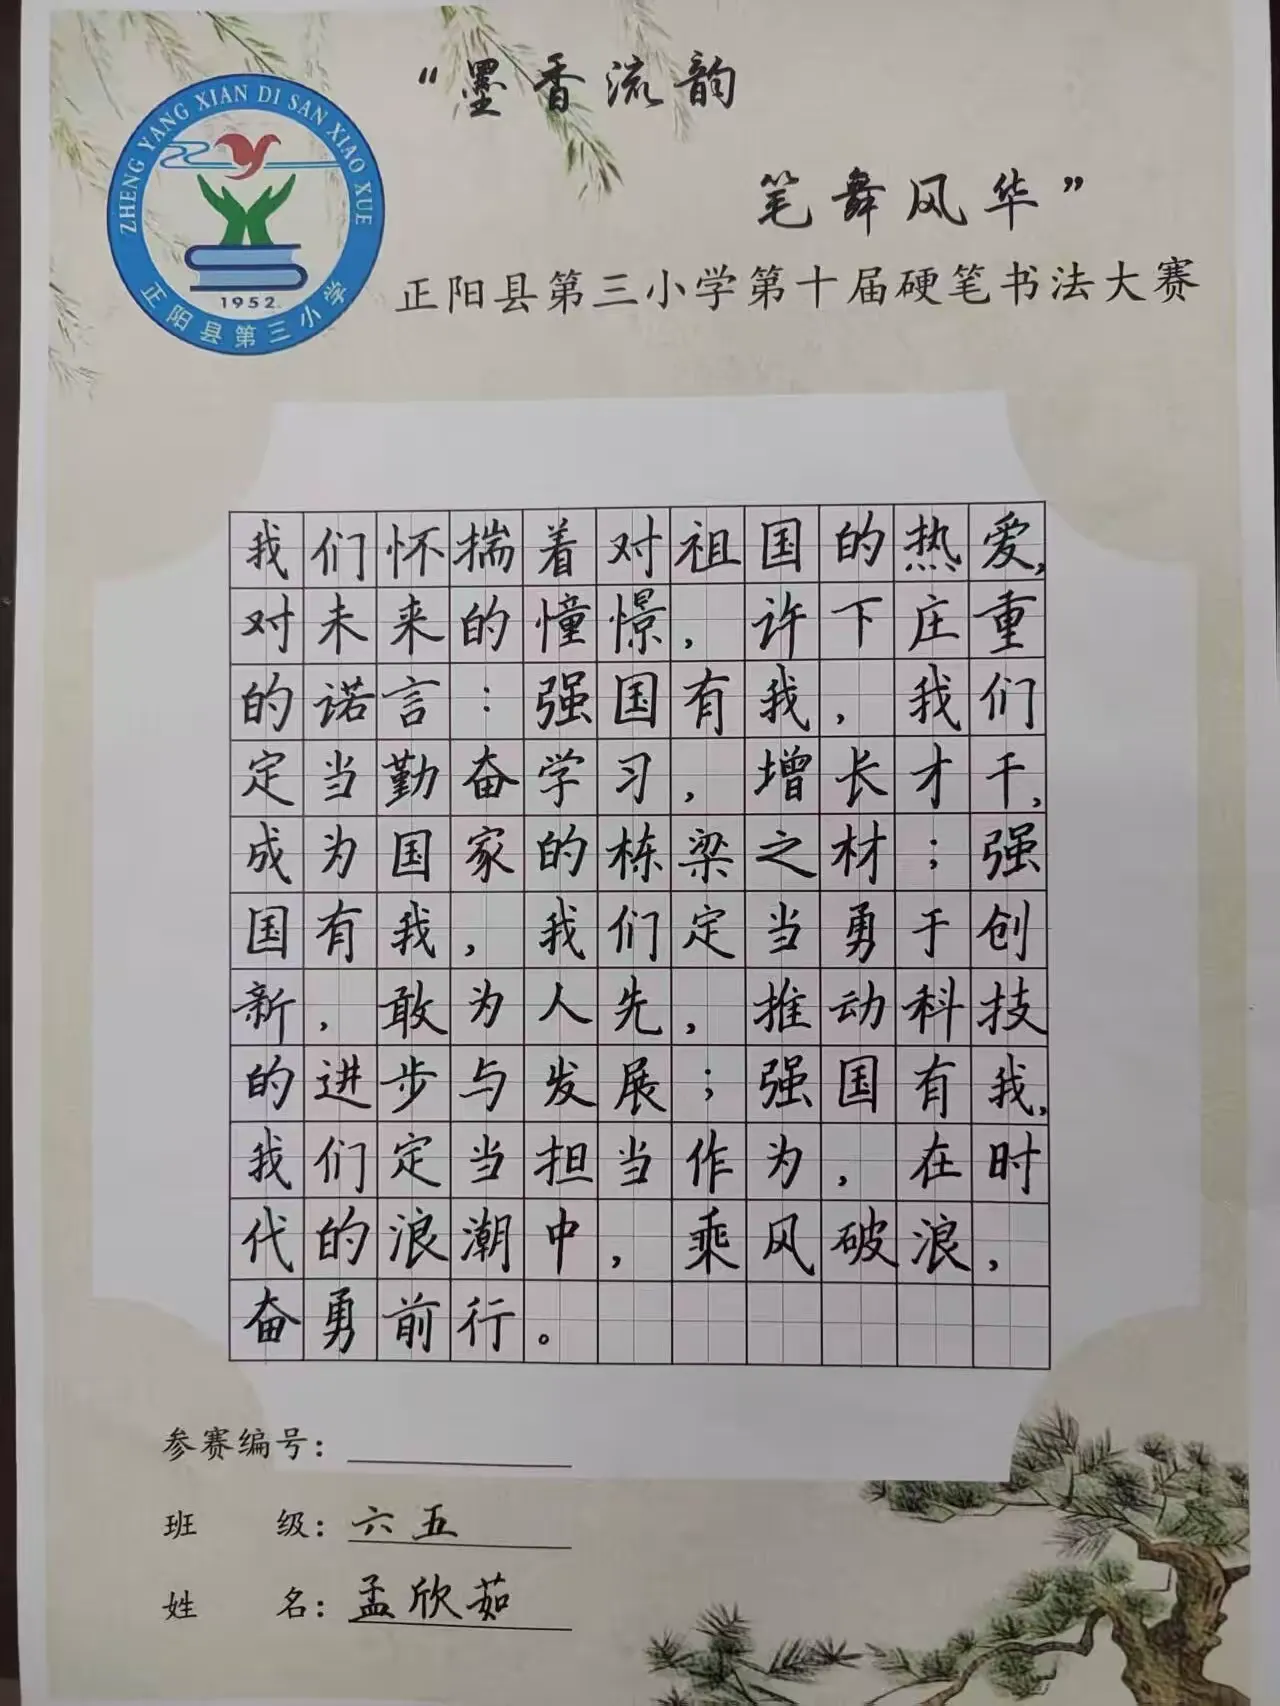 ZHENG YANG XIAN DI SAN XIAO XUE
1952
正阳县第三小学
“墨香流韵
笔舞风华”
正阳县第三小学第十届硬笔书法大赛
我们怀揣着对祖国的热爱,
对未来的憧憬,许下庄重
的诺言:强国有我,我们
定当勤奋学习,增长才干,
成为国家的栋梁之材;强
国有我,我们定当勇于创
新,敢为人先,推动科技
的进步与发展;强国有我,
我们定当担当作为,在时
代的浪潮中,乘风破浪,
奋勇前行。
参赛编号:
班 级:六五
姓 名:孟欣茹